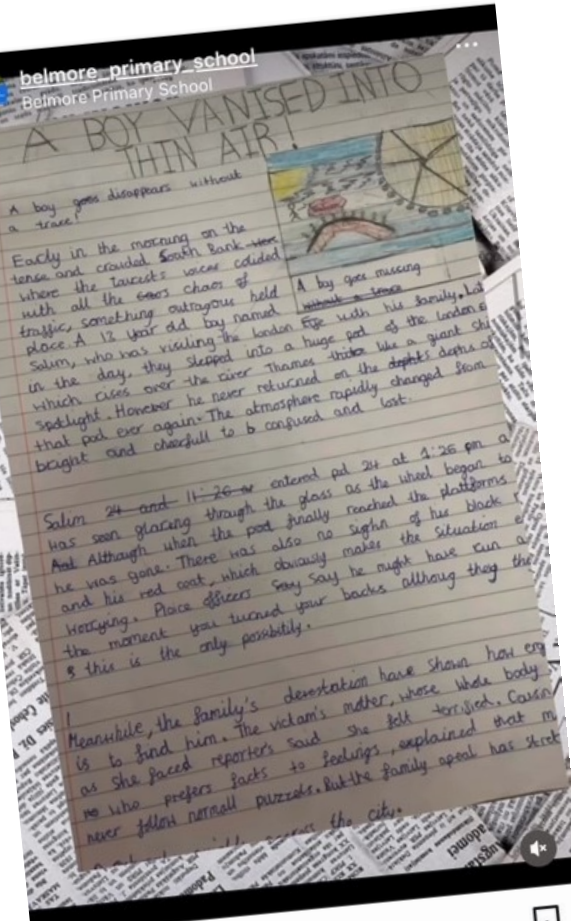 belmore_primary_school
Belmore Primary School
A BOY VANISED INTO
THIN AIR!
A boy goes disappears without
a trace!
Early in the morning on the
tense and crouded South Bank
where the taurists voices colided
with all the chaos of
traffic, something outragous held
place. A 12 year old boy named
A boy goes missing
without a trace
Salim, who was visiting the london Eye with his family. Lat
in the day, they stepped into a huge pod of the london e
which rises over the river Thames like a giant
spotlight. However he never returned on the depths of
that pod ever again. The atmosphere rapidly changed from
bright and cheerfull to confused and lost.
Salim 24 and 11:26 entered pod 24 at 1:26 pm a
was seen glaring through the glass as the wheel began to
Although when the pod finally reached the platforms
he was gone. There was also no sighn of his black
and his red coat, which obviously makes the situation e
worrying. Place officers Say he might have run a
the moment you turned your backs althoug they
this is the only possibility.
Meanwhile, the family's devestation have shown how
is to find him. The victam's mother, whose whole body
as she faced reporters said she felt terrified.
who prefers facts to feelings, explained that m
never follow normall puzzels. But the family apeal has
across the city.